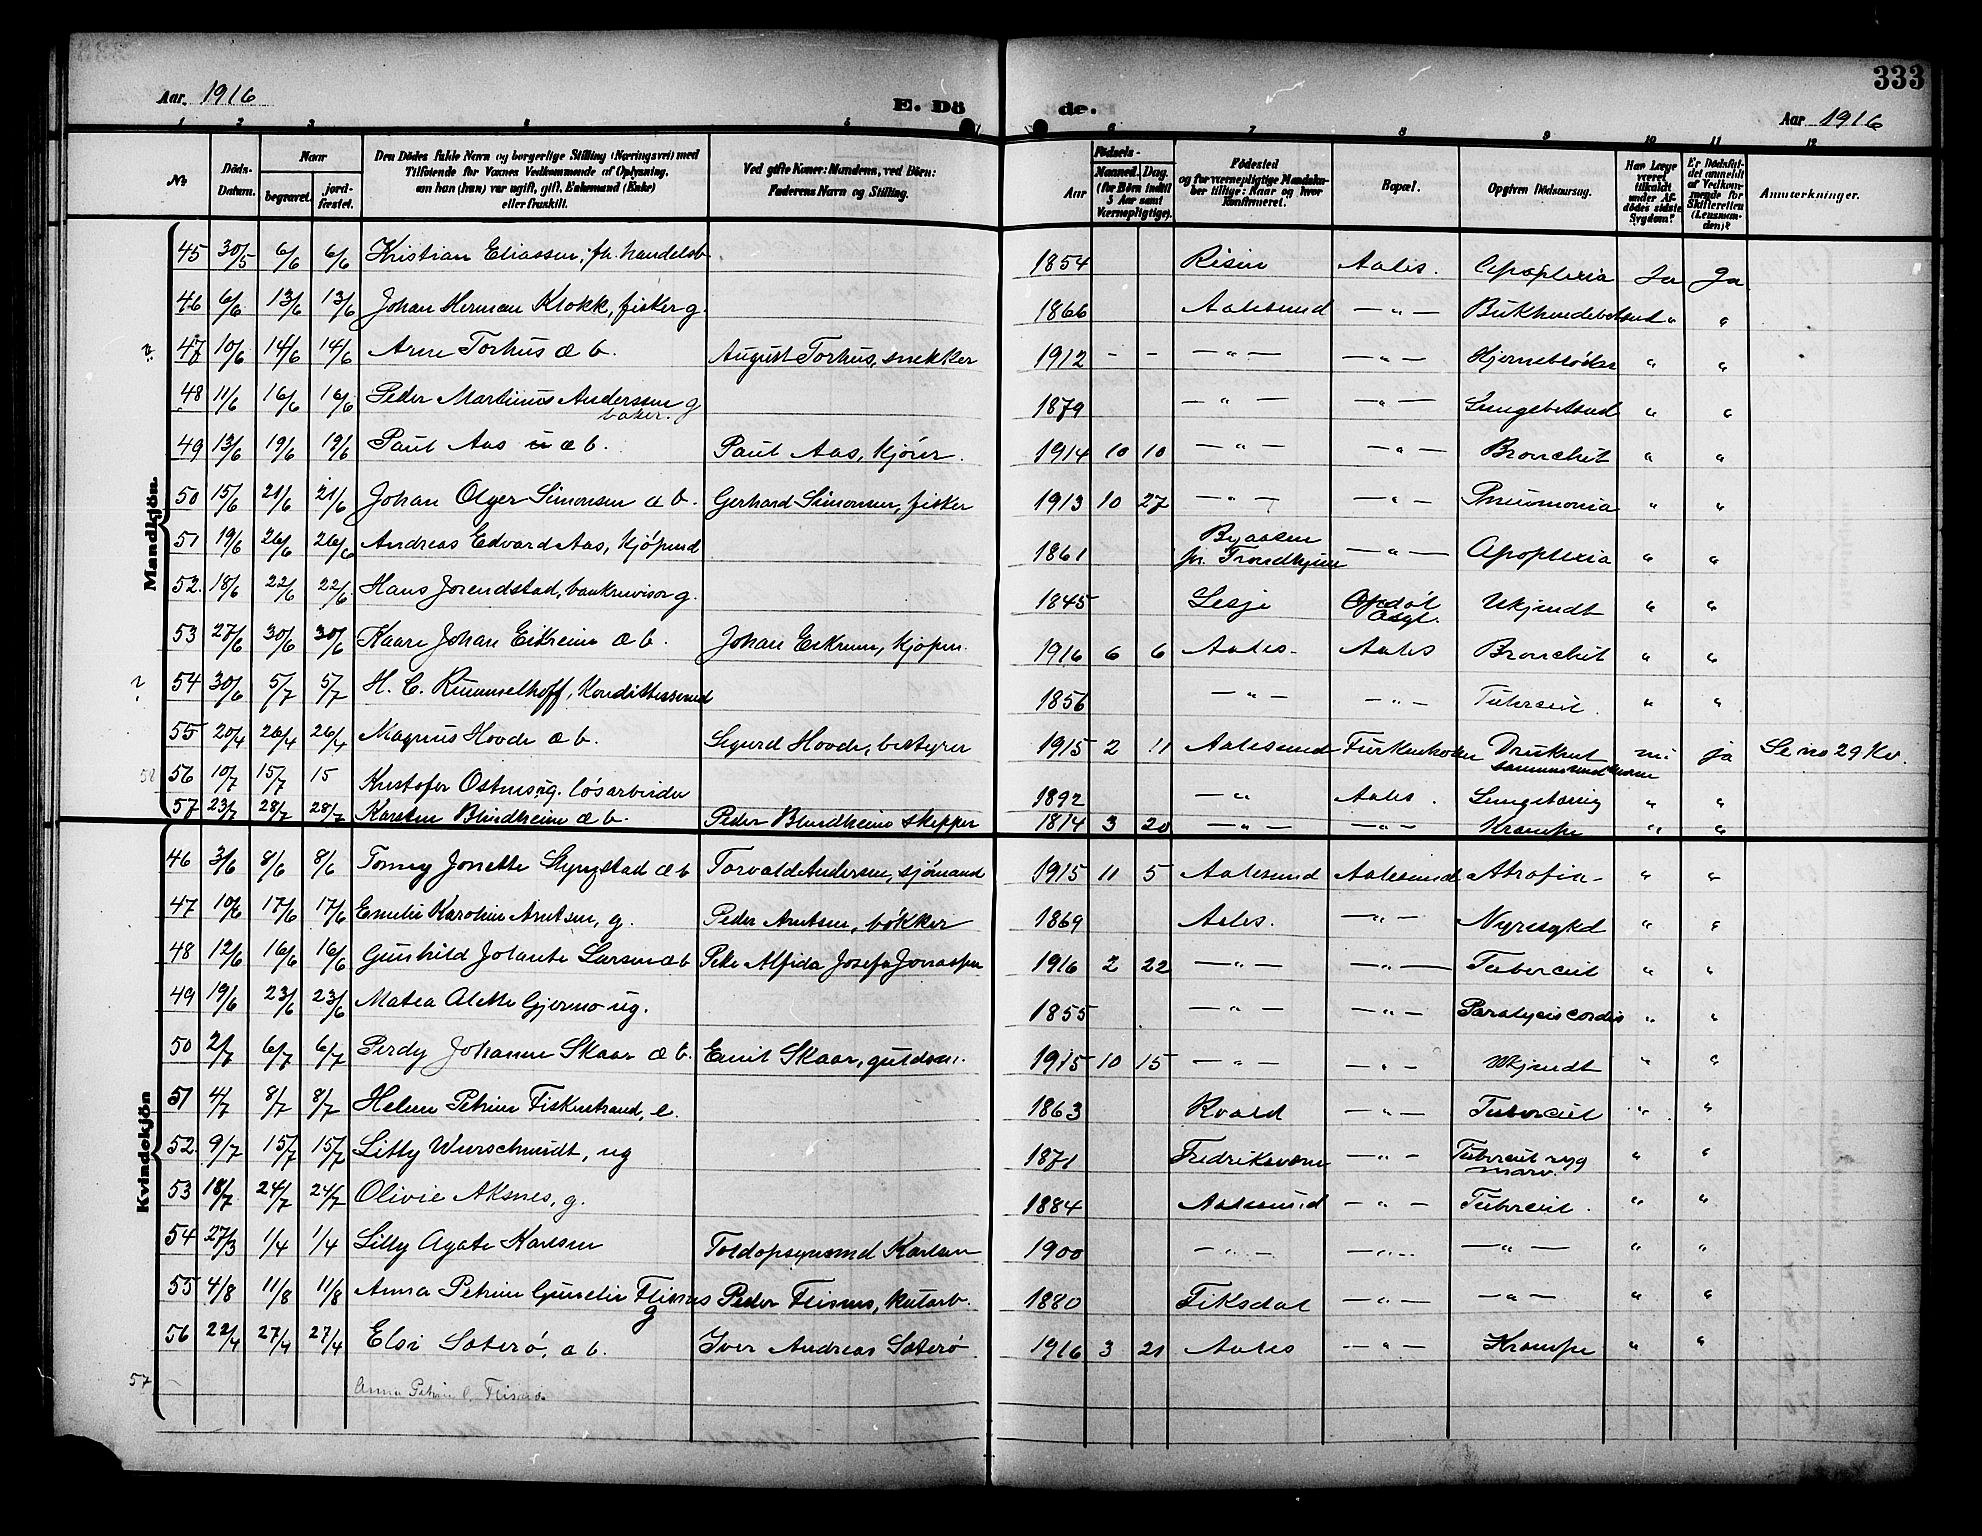 333
Aar. 1916
E. Dö de.
Aar 1916
1 2 3 4 5 6 7 8 9 10 11 12
No Döds-Datum. Naar begravet. jordfæstet. Den Dödes fulde Navn og borgerlige Stilling (Næringsvei) med Tilföiende for Voxnes Vedkommende af Oplysning, om han (hun) var ugift, gift, Enkemand (Enke) eller fraskilt. Ved gifte Koner: Mandens, ved Börn: Faderens Navn og Stilling. Födsels- Aar Maaned. Dag. (for Börn indtil 3 Aar samt Værnepligtige). Födested og for værnepligtige Mandskaber tillige: Naar og hvor Konfirmeret. Bopæl. Opgiven Dödsaarsag. Har Læge været tilkaldt under Afdödes sidste Sygdom? Er Dödsfaldet anmeldt af Vedkommende for Skifteretten (Lensmanden)? Anmærkninger.
Mandkjön.
45 30/5 6/6 6/6 Kristian Eliassen, fh. handelsb 1854 Risin Aales. Apoplexia Ja Ja
46 6/6 13/6 13/6 Johan Herman Klokk, fisker g. 1866 Aalesund — " — Bukhindebetænd " "
47 10/6 14/6 14/6 Arne Torhus æ b. August Torhus, snekker 1912 - - — " — — " — Hjerneblødn " "
48 11/6 16/6 16/6 Peder Martinus Anderssen g
baker. 1879 — " — — " — Lungebetænd " "
49 13/6 19/6 19/6 Paul Aas u æ b. Paul Aas, kjører. 1914 10 10 — " — — " — Bronchit " "
50 15/6 21/6 21/6 Johan Olger Simonsen æ b. Gerhard Simonsen, fisker 1913 10 27 — " — — " — Pneumonia " "
51 19/6 26/6 26/6 Andreas Edvard Aas, kjøpmd 1861 Byaasen
pr. Trondhjem — " — Apoplexia " "
52. 18/6 22/6 22/6 Hans Jorendstad, bankrevisor g. 1845 Lesje Opdøl
Ukjendt " "
53 27/6 30/6 30/6 Kaare Johan Eikrem æ b. Johan Eikrem, kjøpm. 1916 6 6 Aales. Aales Bronchit " "
54 30/6 5/7 5/7 H. C. Rummelhoff, 1856 — " — — " — Tubercul. " "
55 20/4 26/4 26/4 Magnus Hovde æ b. Sigurd Hovde, bestyrer 1915 2 11 Aalesund Druknet
sammen med moren ja Se no 29 Kv.
58 56 10/7 15/7 15 Kristofer Ostnes ug. løsarbeider 1892 — " Aales. Lungetæring " "
57 23/7 28/7 28/7 Karsten Blindheim æ b. Peder Blindheim skipper 1814 3 20 — " — — " — Krampe " "
Kvindekjön
46 3/6 8/6 8/6 Tomy Jonette Slyngstad æ b Torvald Andersen, sjømand 1915 11 5 Aalesund Aalesund Atrofia - " "
47 10/6 17/6 17/6 Emilie Karoline Arntsen, g. Peder Arntsen, bøkker 1869 Aales. — " — Nyresykd " "
48 12/6 16/6 16/6 Gunhild Jolante Larsen æ b Alfida Josefa 1916 2 22 — " — — " — Tubercul " "
49 19/6 23/6 23/6 Matea Alette Gjermo ug. 1855 — " — — " — Paralycis cordis " "
50 2/7 6/7 6/7 Perdy Johanne Skaar æ b. Emil Skaar, guldsm. 1915 10 15 — " — — " — Ukjendt " "
51 4/7 8/7 8/7 Helene Petrine Fiskerstrand, e. 1863 Roald — " — Tubercul " "
52. 9/7 15/7 15/7 Lilly Wurschmidt, ug 1871 Fredriksværn — " — Tubercul ryg
marv. " "
53 18/7 24/7 24/7 Olivie Aksnes, g. 1884 Aalesund — " — Tubercul. " "
54 27/3 1/4 1/4 Lilly Agate Karlsen Toldopsynsmd Karlsen 1900 — " — — " — — " — " "
55 4/8 11/8 11/8 Anna Petrine Flisnes
g Peder Flisnes, kularb. 1880 Fiksdal — " — — " — " "
56 22/4 27/4 27/4 Elsi Saterø, æ b. Iver Andreas Saterø 1916 3 21 Aales — " — Krampe " "
57 Anna Petrine